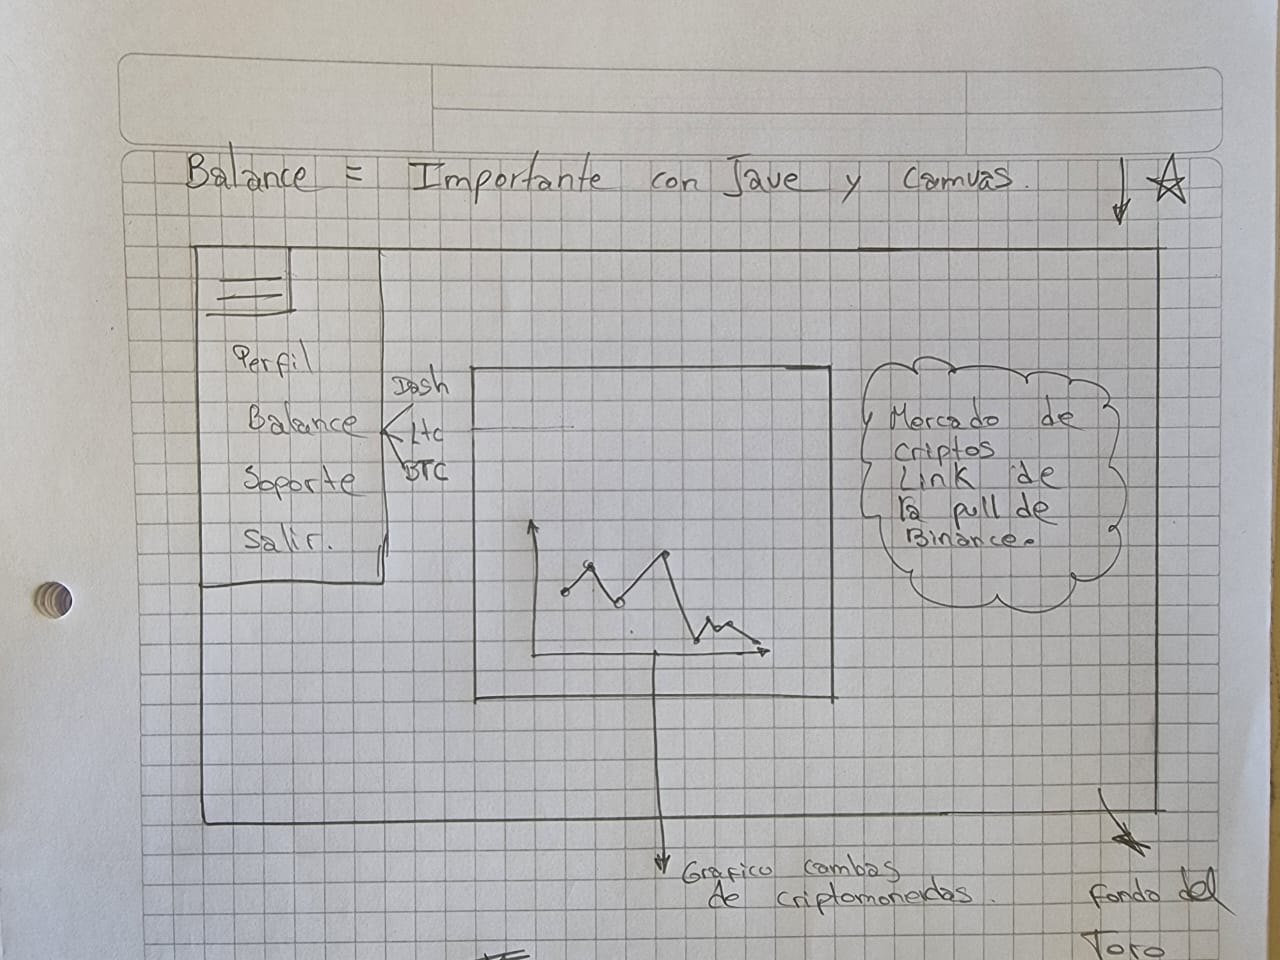 Balance = Importante con Jave y Camvas.
Perfil
Balance
Soporte
Salir.
Dash
Ltc
BTC
Mercado de
criptos
Link de
la pull de
Binance.
Grafico cambas
de criptomonedas.
fondo del
Toro